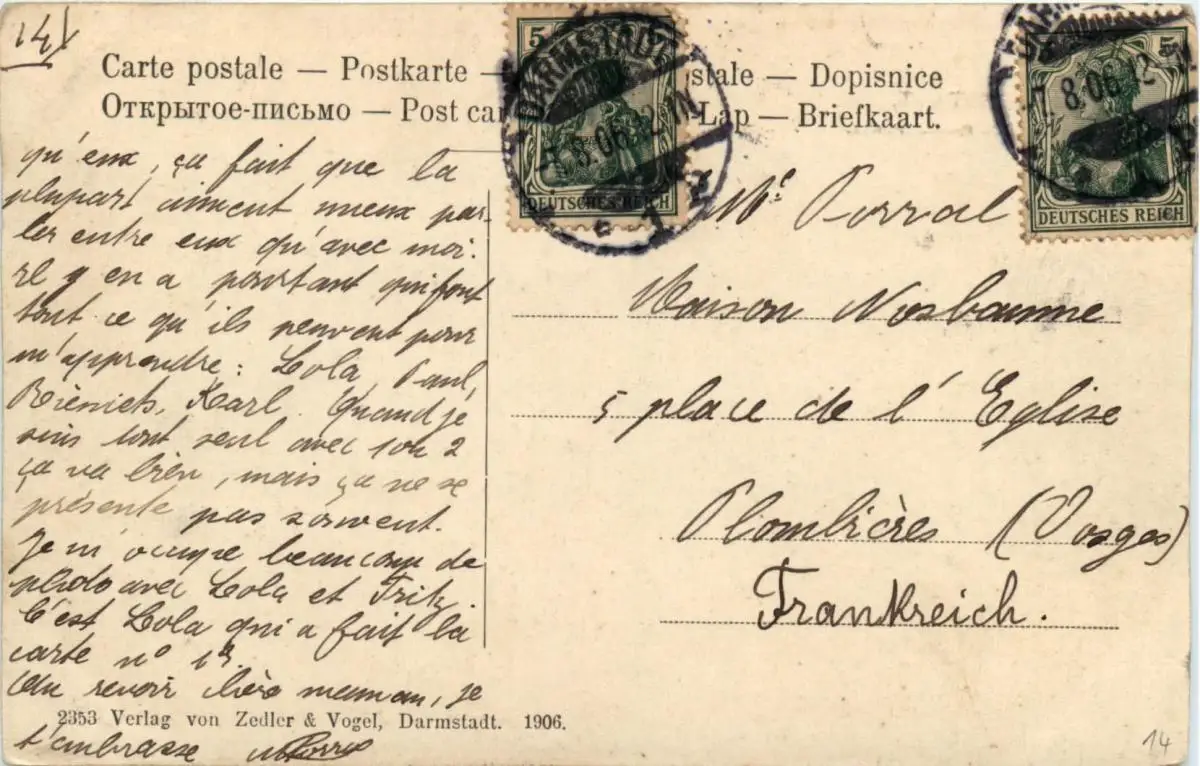 14
Carte postale — Postkarte — stale — Dopisnice
Открытое-письмо — Post car Lap — Briefkaart.
5
DARMSTADT
8.06.12
DEUTSCHES REICH
5
8.06.12
DEUTSCHES REICH
qu'eux, ça fait que la
plupart aiment mieux par-
ler entre eux qu'avec moi.
Il y en a pourtant qui font
tout ce qu'ils peuvent pour
m'apprendre : Lola, Paul,
Karl. Quand je
suis tout seul avec 1 ou 2
ça va bien, mais ça ne se
présente pas souvent.
Je m'occupe beaucoup de
photo avec Lola et Fritz.
C'est Lola qui a fait la
carte n° 13
Au revoir chère maman, je
t'embrasse
2353 Verlag von Zedler & Vogel, Darmstadt. 1906.
Porral
Maison Nosbaume
5 place de l'Eglise
Plombières (Vosges)
Frankreich.
14